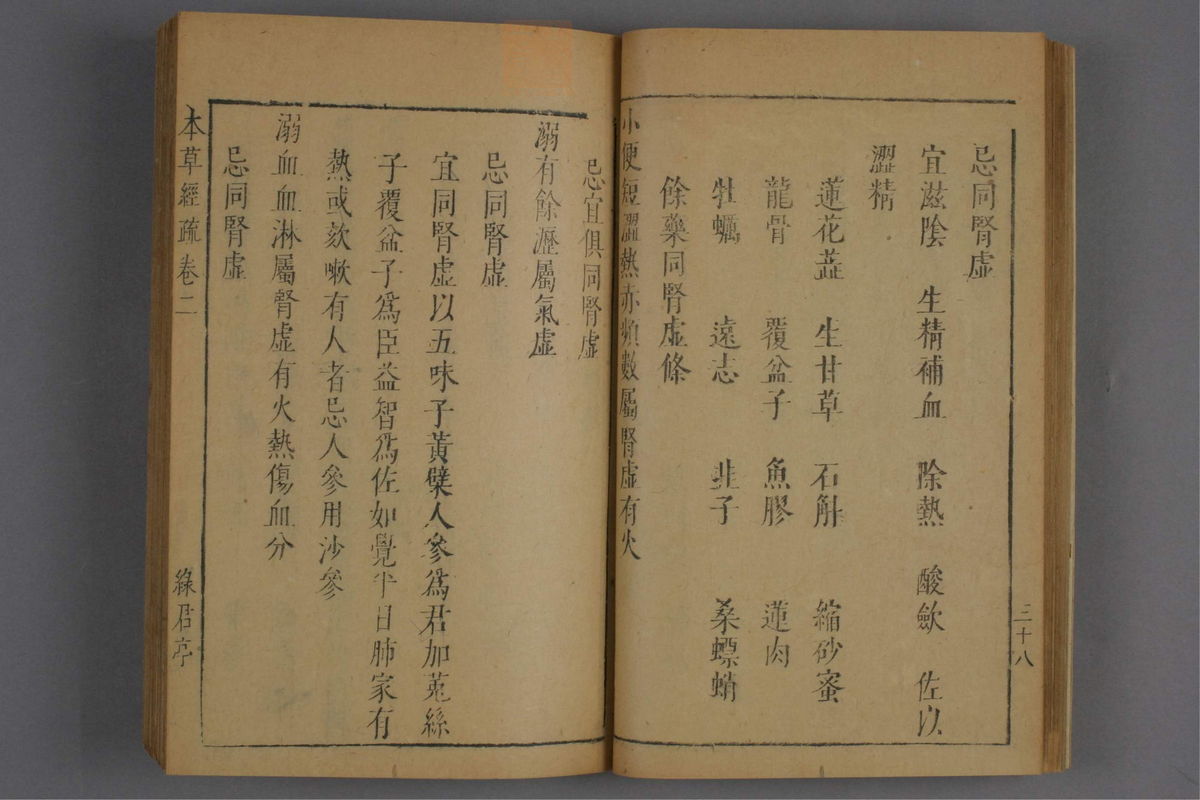 三十八
忌同腎虛
宜滋陰 生精補血 除熱 酸歛 佐以
澀精
蓮花蘂 生甘草 石斛 縮砂蜜
龍骨 覆盆子 魚膠 蓮肉
牡蠣 遠志 韭子 桑螵蛸
餘藥同腎虛條
小便短澀熱赤頻數屬腎虛有火
忌宜俱同腎虛
溺有餘瀝屬氣虛
忌同腎虛
宜同腎虛以五味子黃蘗人參爲君加菟絲
子覆盆子爲臣益智爲佐如覺平日肺家有
熱或欬嗽有人者忌人參用沙參
溺血血淋屬腎虛有火熱傷血分
忌同腎虛
本草經疏 卷二 綠君亭